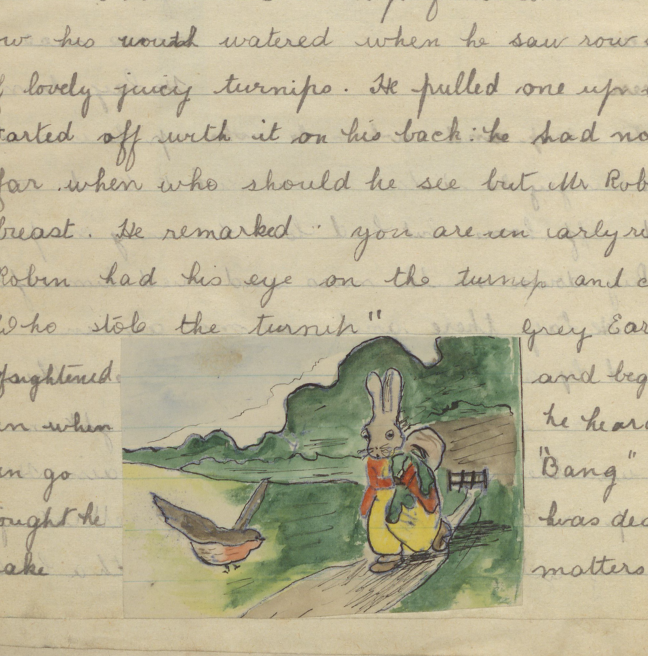 w his mouth watered when he saw row
lovely juicy turnips. He pulled one up
tarted off with it on his back: he had no
far when who should he see but Mr Rob
breast. He remarked "you are un early ri
Robin had his eye on the turnip and
Who stole the turnip" grey Ear
frightened and beg
un when he hear
un go "Bang"
ought he was dea
ake matters